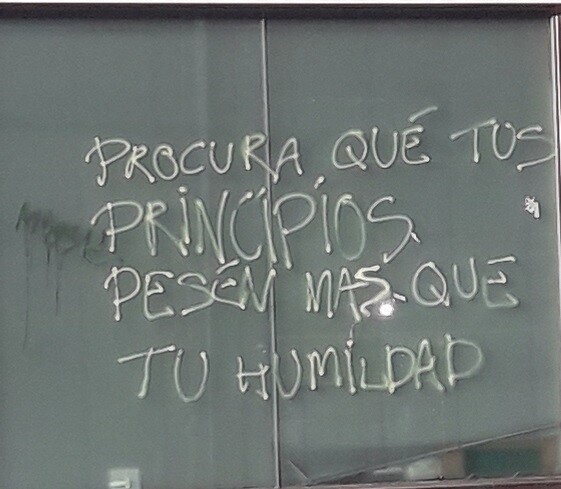 PROCURA QUÉ TUS
PRINCIPIOS
PESÉN MAS QUE
TU HUMILDAD